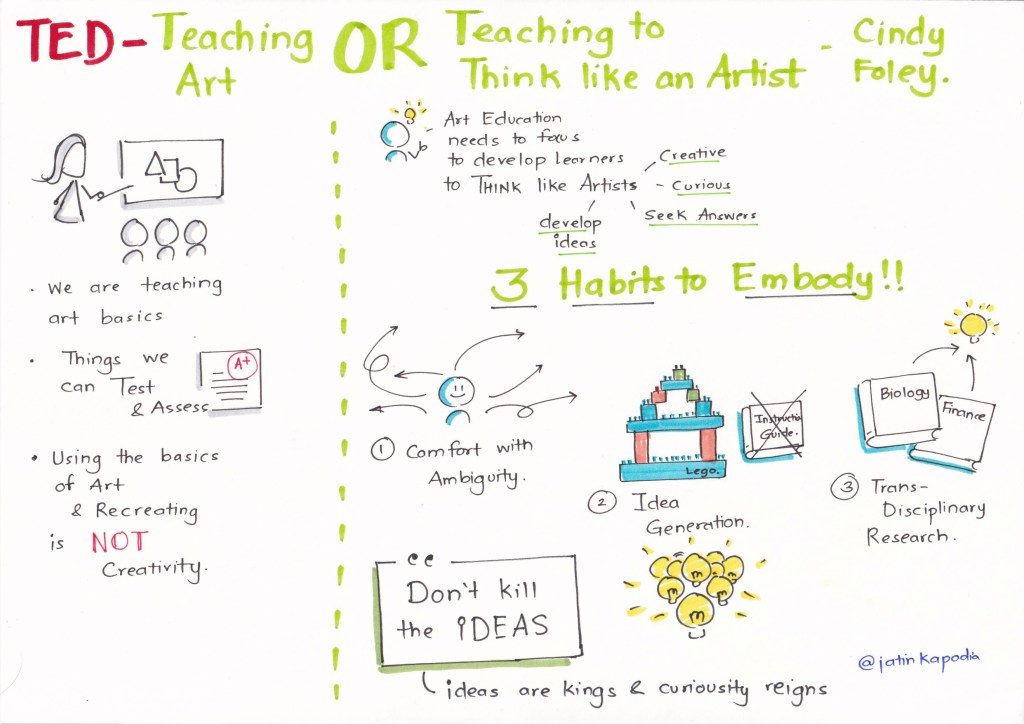 TED - Teaching Art OR Teaching to Think like an Artist - Cindy Foley.
We are teaching
art basics
Things we
can Test
& Assess
A+
Using the basics
of Art
& Recreating
is NOT
Creativity.
Art Education
needs to focus
to develop Learners
to THINK like Artists
Creative
- Curious
Seek Answers
develop
ideas
3 Habits to Embody!!
1 Comfort with
Ambiguity.
Lego.
Instructio
Guide.
2 Idea
Generation.
Biology
Finance
3 Trans-
Disciplinary
Research.
Don't kill
the IDEAS
ideas are kings & curiousity reigns
@jatin kapadia